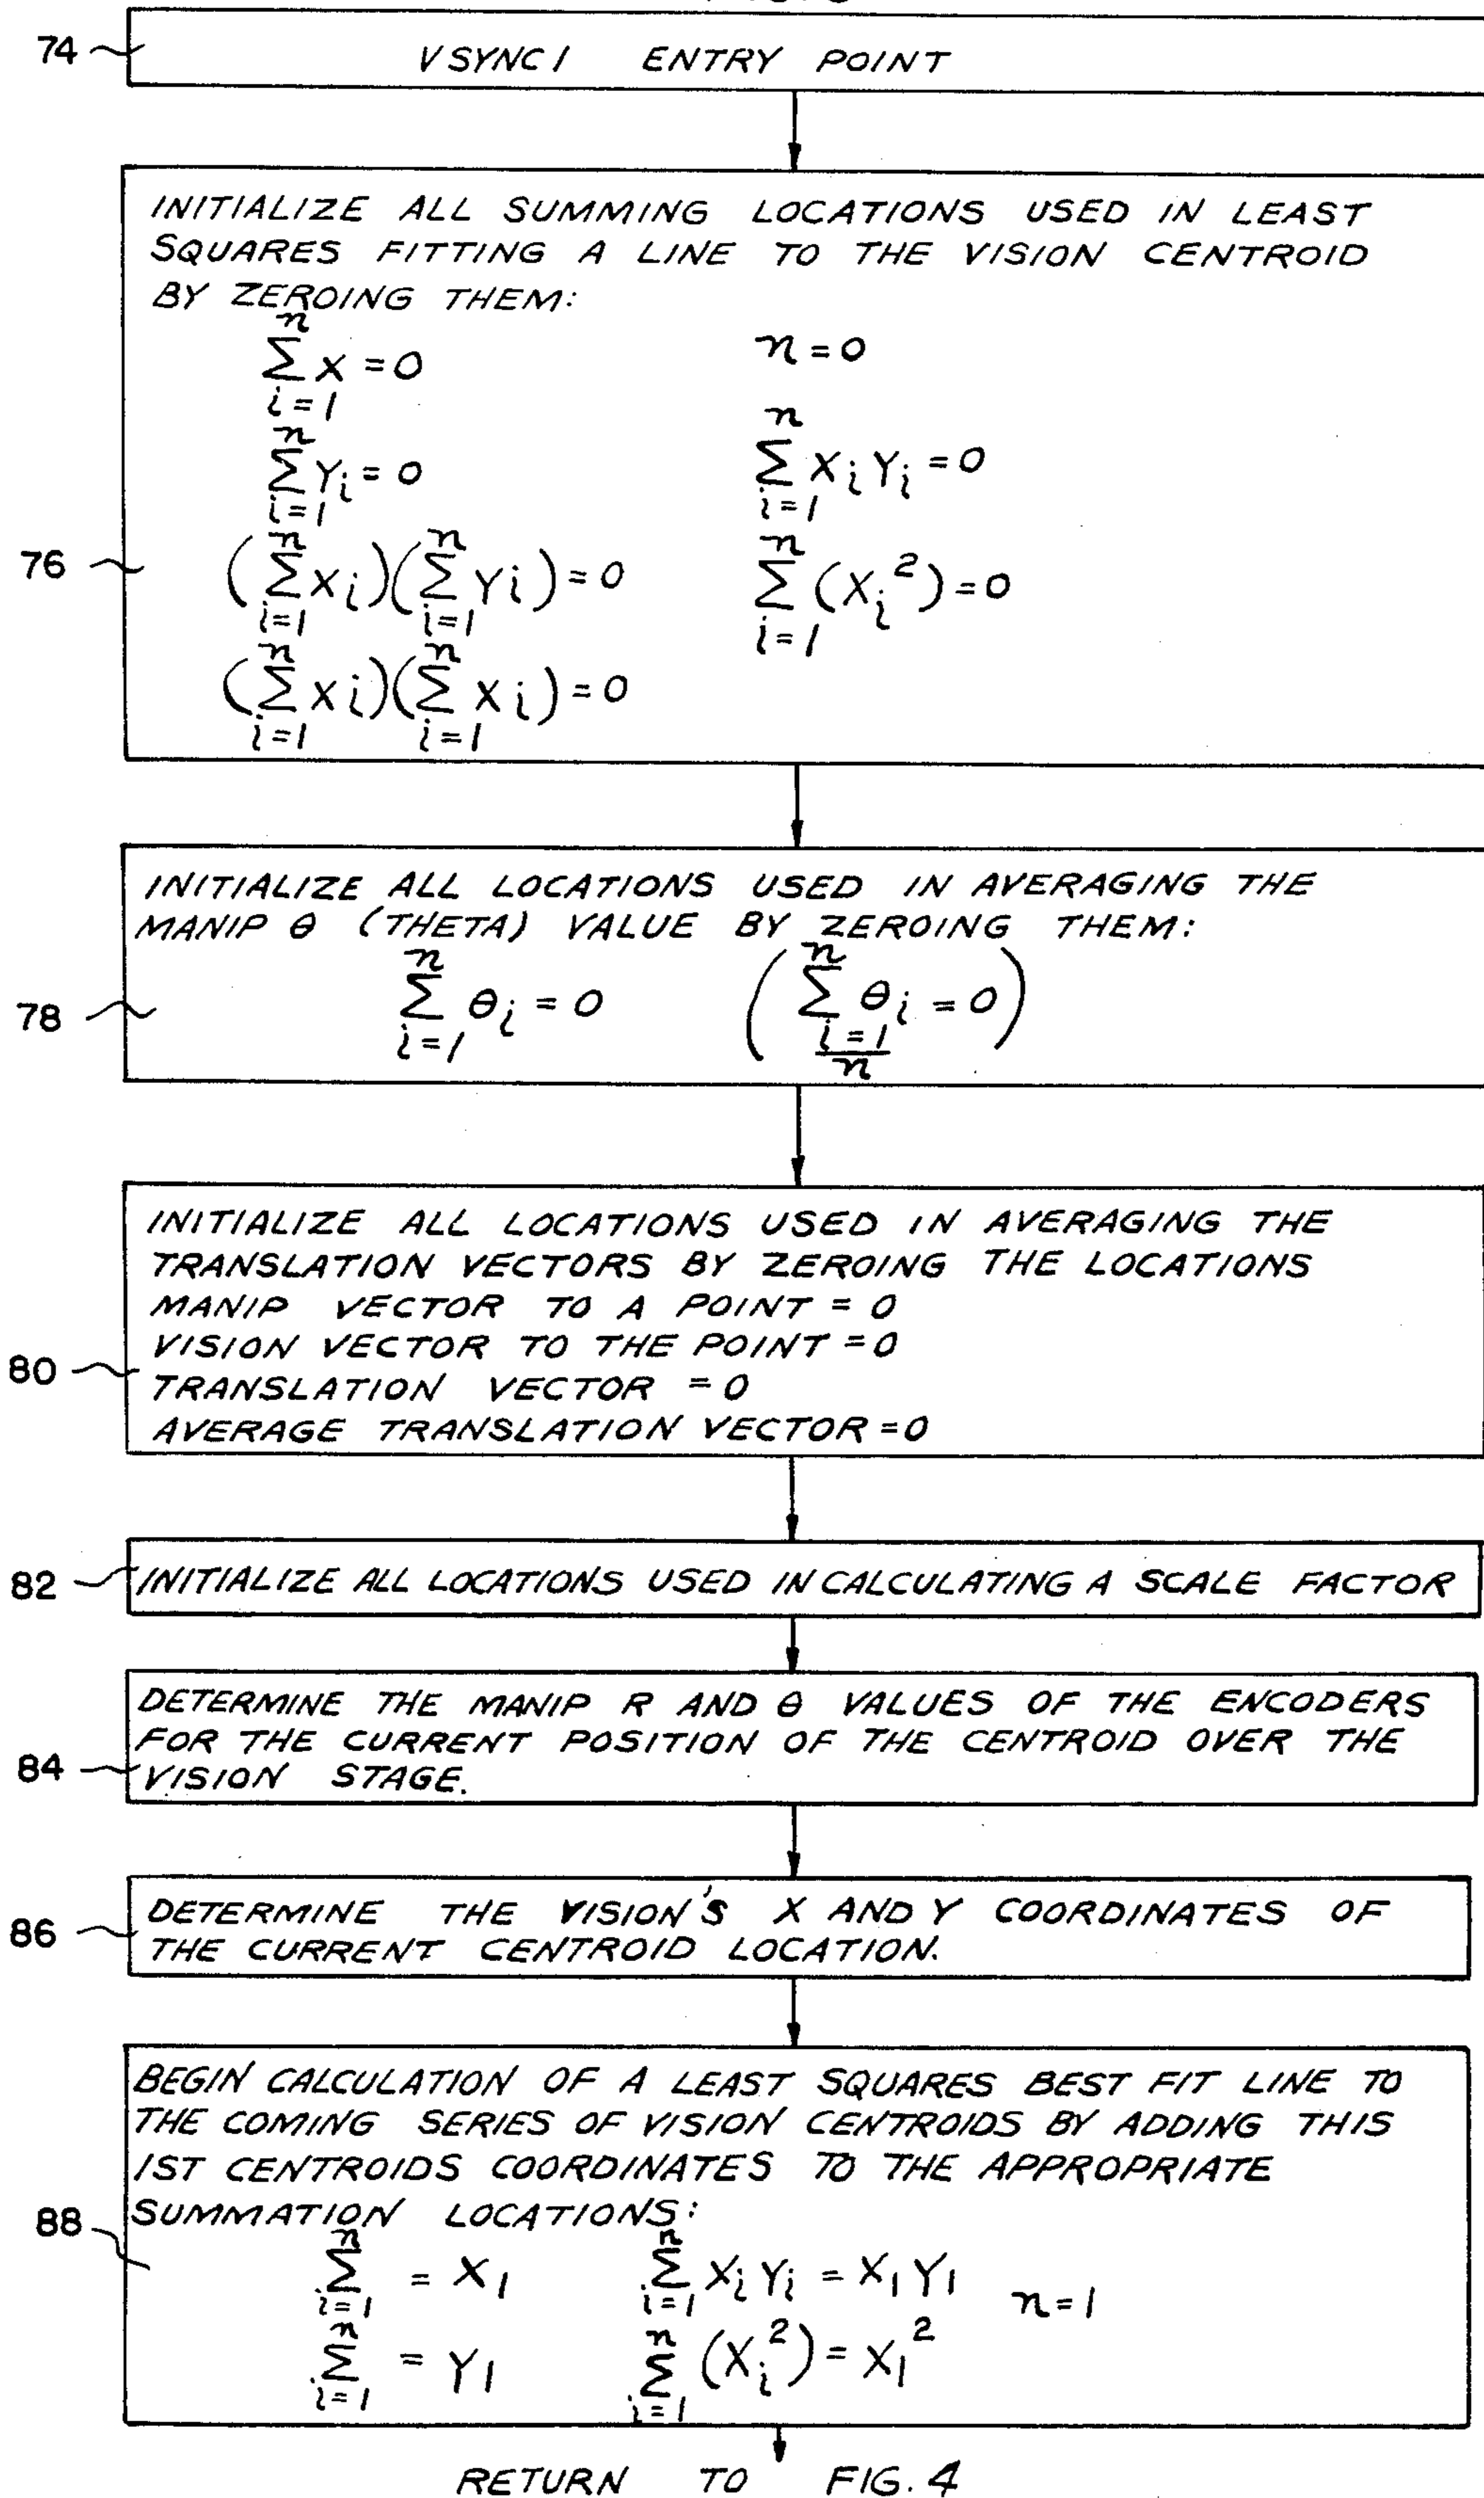 74
VSYNC1 ENTRY POINT
INITIALIZE ALL SUMMING LOCATIONS USED IN LEAST
SQUARES FITTING A LINE TO THE VISION CENTROID
BY ZEROING THEM:
n
Σ X = 0
i=1
n = 0
n
Σ Yi = 0
i=1
n
Σ XiYi = 0
i=1
76
n n
(Σ Xi)(Σ Yi) = 0
i=1 i=1
n
Σ (Xi²) = 0
i=1
n n
(Σ Xi)(Σ Xi) = 0
i=1 i=1
INITIALIZE ALL LOCATIONS USED IN AVERAGING THE
MANIP θ (THETA) VALUE BY ZEROING THEM:
78
n n
Σ θi = 0 (Σ θi = 0)
i=1 i=1
n
INITIALIZE ALL LOCATIONS USED IN AVERAGING THE
TRANSLATION VECTORS BY ZEROING THE LOCATIONS
MANIP VECTOR TO A POINT = 0
VISION VECTOR TO THE POINT = 0
80
TRANSLATION VECTOR = 0
AVERAGE TRANSLATION VECTOR = 0
82
INITIALIZE ALL LOCATIONS USED IN CALCULATING A SCALE FACTOR
DETERMINE THE MANIP R AND θ VALUES OF THE ENCODERS
FOR THE CURRENT POSITION OF THE CENTROID OVER THE
84
VISION STAGE.
DETERMINE THE VISION'S X AND Y COORDINATES OF
86
THE CURRENT CENTROID LOCATION.
BEGIN CALCULATION OF A LEAST SQUARES BEST FIT LINE TO
THE COMING SERIES OF VISION CENTROIDS BY ADDING THIS
1ST CENTROIDS COORDINATES TO THE APPROPRIATE
SUMMATION LOCATIONS:
88
n n
Σ = X1 Σ XiYi = X1Y1
i=1 i=1
n=1
n n
Σ = Y1 Σ (Xi²) = X1²
i=1 i=1
RETURN TO FIG. 4